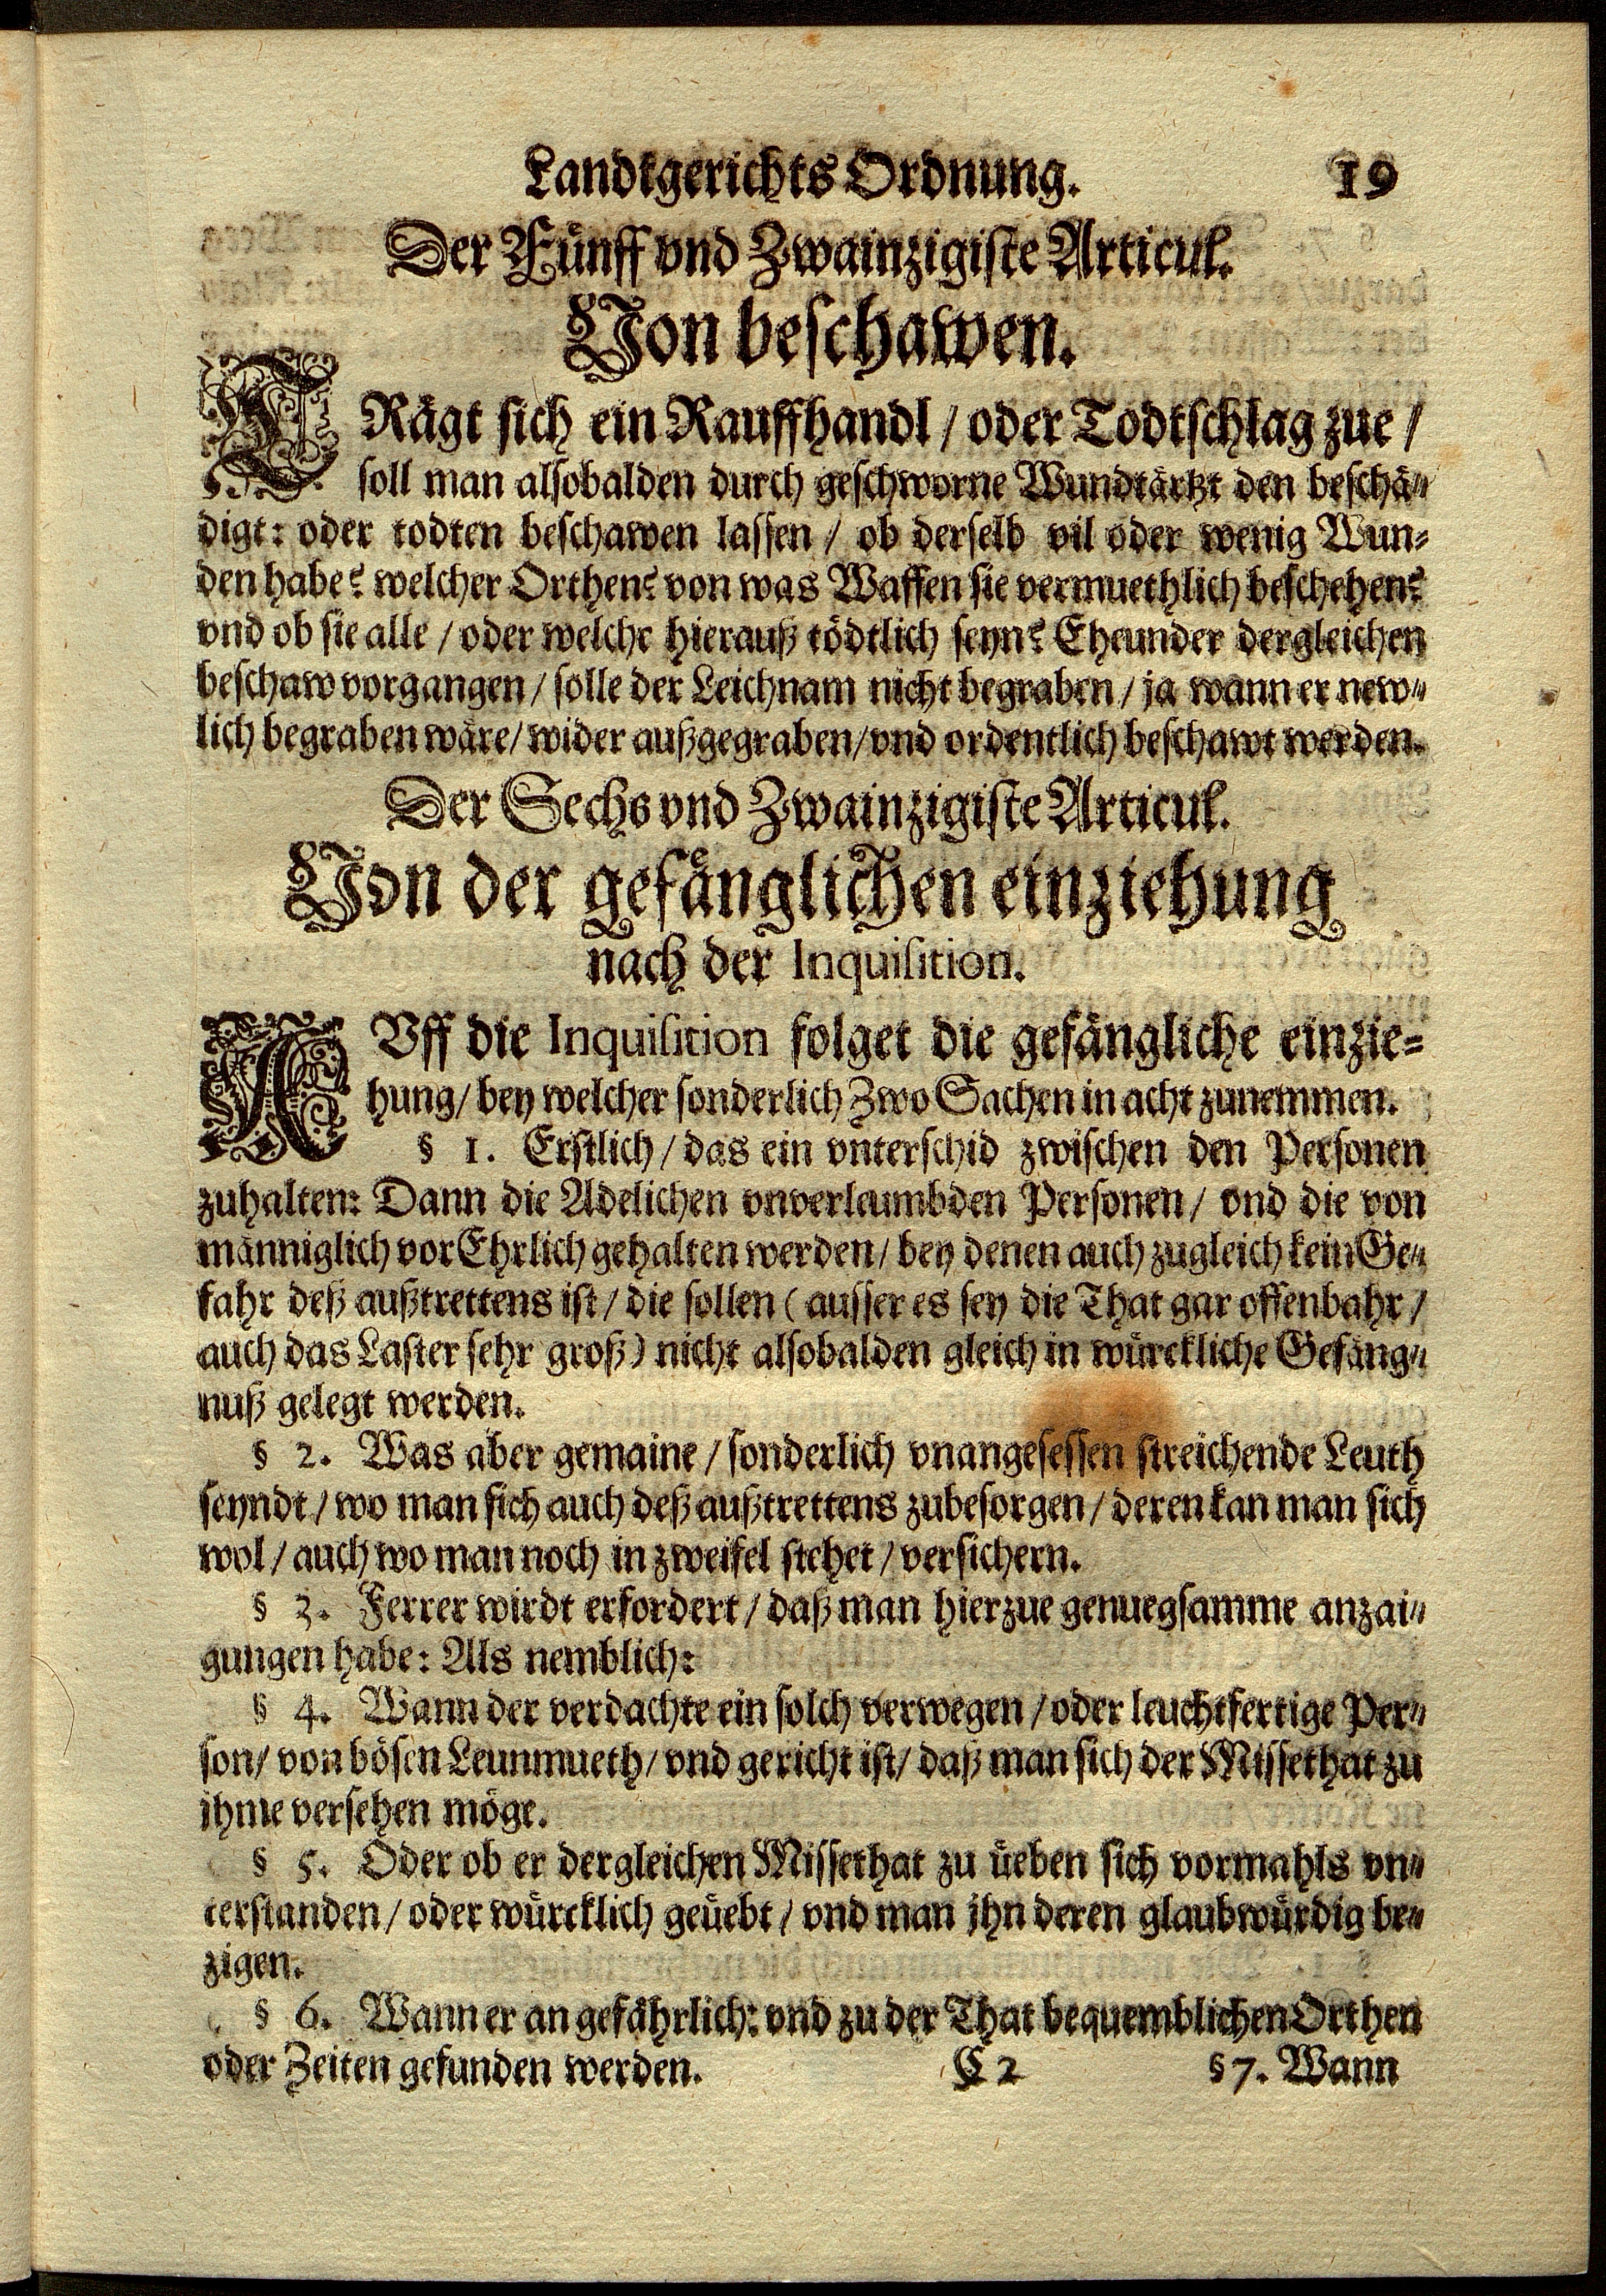 Landtgerichts Ordnung. 19
Der Fünff vnd Zwainzigiste Articul.
Von beschawen.
TRägt sich ein Rauffhandl / oder Todtschlag zue /
soll man alsobalden durch geschworne Wundtärtzt den beschä-
digt: oder todten beschawen lassen / ob derselb vil oder wenig Wun-
den habe? welcher Orthen? von was Waffen sie vermuethlich beschehen?
vnd ob sie alle / oder welche hierauß tödtlich seyn? Eheunder dergleichen
beschaw vorgangen / solle der Leichnam nicht begraben / ja wann er new-
lich begraben wäre / wider außgegraben / vnd ordentlich beschawt werden.
Der Sechs vnd Zwainzigiste Articul.
Von der gefänglichen einziehung
nach der Inquisition.
AVff die Inquisition folget die gefängliche einzie-
hung / bey welcher sonderlich Zwo Sachen in acht zunemmen.
§ 1. Erstlich / das ein vnterschid zwischen den Personen
zuhalten: Dann die Adelichen vnverleumbden Personen / vnd die von
männiglich vor Ehrlich gehalten werden / bey denen auch zugleich kein Ge-
fahr deß außtrettens ist / die sollen ( ausser es sey die That gar offenbahr /
auch das Laster sehr groß ) nicht alsobalden gleich in würckliche Gefäng-
nuß gelegt werden.
§ 2. Was aber gemaine / sonderlich vnangesessen streichende Leuth
seyndt / wo man sich auch deß außtrettens zubesorgen / deren kan man sich
wol / auch wo man noch in zweifel stehet / versichern.
§ 3. Ferrer wirdt erfordert / daß man hierzue genuegsamme anzai-
gungen habe: Als nemblich:
§ 4. Wann der verdachte ein solch verwegen / oder leuchtfertige Per-
son / von bösen Leunmueth / vnd gericht ist / daß man sich der Missethat zu
jhme versehen möge.
§ 5. Oder ob er dergleichen Missethat zu üeben sich vormahls vn-
terstanden / oder würcklich geüebt / vnd man jhn deren glaubwürdig be-
zigen.
§ 6. Wann er an gefährlich: vnd zu der That bequemblichen Orthen
oder Zeiten gefunden werden. C 2 § 7. Wann